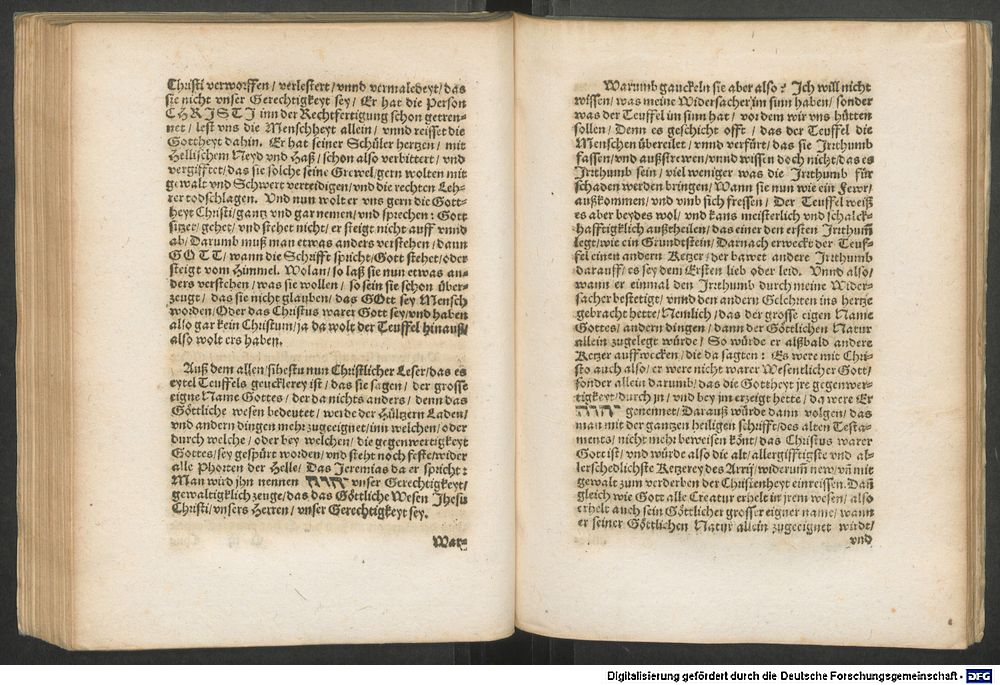 Christi verworffen / verlestert / vnnd vermaledeyt / das
sie nicht vnser Gerechtigkeyt sey / Er hat die Person
CHRISTI inn der Rechtfertigung schon getren-
net / lest vns die Menschheyt allein / vnnd reisset die
Gottheyt dahin. Er hat seiner Schüler hertzen / mit
Hellischem Neyd vnd Haß / schon also verbittert / vnd
vergifftet / das sie solche seine Grewel / gern wolten mit
gewalt vnd Schwert verteidigen / vnd die rechten Leh-
rer todschlagen. Vnd nun wolt er vns gern die Gott-
heyt Christi / gantz vnd gar nemen / vnd sprechen: Gott
sitzet / gehet / vnd stehet nicht / er steigt nicht auff vnnd
ab / Darumb muß man etwas anders verstehen / dann
GOTT / wann die Schrifft spricht / Gott stehet / oder
steigt vom Himmel. Wolan / so laß sie nun etwas an-
ders verstehen / was sie wollen / so sein sie schon über-
zeugt / das sie nicht glauben / das GOtt sey Mensch
worden / Oder das Christus warer Gott sey / vnd haben
also gar kein Christum / ja da wolt der Teuffel hinauß /
also wolt ers haben.
Auß dem allen / sihestu nun Christlicher Leser / das es
eytel Teuffels geucklerey ist / das sie sagen / der grosse
eigne Name Gottes / der da nichts anders / denn das
Göttliche wesen bedeutet / werde der Hültzern Laden /
vnd andern dingen mehr zugeeignet / inn welchen / oder
durch welche / oder bey welchen / die gegenwertigkeyt
Gottes / sey gespürt worden / vnd steht noch feste / wider
alle Phorten der Helle / Das Jeremias da er spricht:
Man wird jhn nennen יהוה vnser Gerechtigkeyt /
gewaltigklich zeuge / das das Göttliche Wesen Jhesu
Christi / vnsers Herren / vnser Gerechtigkeyt sey.
War-
Warumb gauckeln sie aber also? Ich will nicht
wissen / was meine Widersacher im sinn haben / sonder
was der Teuffel im sinn hat / vor dem wir vns hütten
sollen / Denn es geschicht offt / das der Teuffel die
Menschen übereilet / vnnd verfürt / das sie Irrthumb
fassen / vnd außstrewen / vnnd wissen doch nicht / das es
Irrthumb sein / viel weniger was die Irrthumb für
schaden werden bringen / Wann sie nun wie ein Fewr /
außkommen / vnd vmb sich fressen / Der Teuffel weiß
es aber beydes wol / vnd kans meisterlich vnd schalck-
hafftigklich außtheilen / das einer den ersten Irrthum̃
legt / wie ein Grundtstein / Darnach erweckt der Teuf-
fel einen andern Ketzer / der bawet andere Irrthumb
darauff / es sey dem Ersten lieb oder leid. Vnnd also /
wann er einmal den Irrthumb durch meine Wider-
sacher bestetigt / vnnd den andern Gelehrten ins hertze
gebracht hette / Nemlich / das der grosse eigen Name
Gottes / andern dingen / dann der Göttlichen Natur
allein zugelegt würde / So würde er alßbald andere
Ketzer auffwecken / die da sagten: Es were mit Chri-
sto auch also / er were nicht warer Wesentlicher Gott /
sonder allein darumb / das die Gottheyt jre gegenwer-
tigkeyt / durch jn / vnd bey jm erzeigt hette / da were Er
יהוה genennet / Darauß würde dann volgen / das
man mit der gantzen heiligen schrifft / des alten Testa-
ments / nicht mehr beweisen könt / das Christus warer
Gott ist / vnd würde also die alt / allergifftigste vnd al-
lerschedlichste Ketzerey des Arrij / widerum̃ new / vñ mit
gewalt zum verderben der Christenheyt einreissen. Dañ
gleich wie Gott alle Creatur erhelt in jrem wesen / also
erhelt auch sein Göttlicher grosser eigner name / wann
er seiner Göttlichen Natur allein zugeeignet wirdt /
vnd
Digitalisierung gefördert durch die Deutsche Forschungsgemeinschaft - DFG